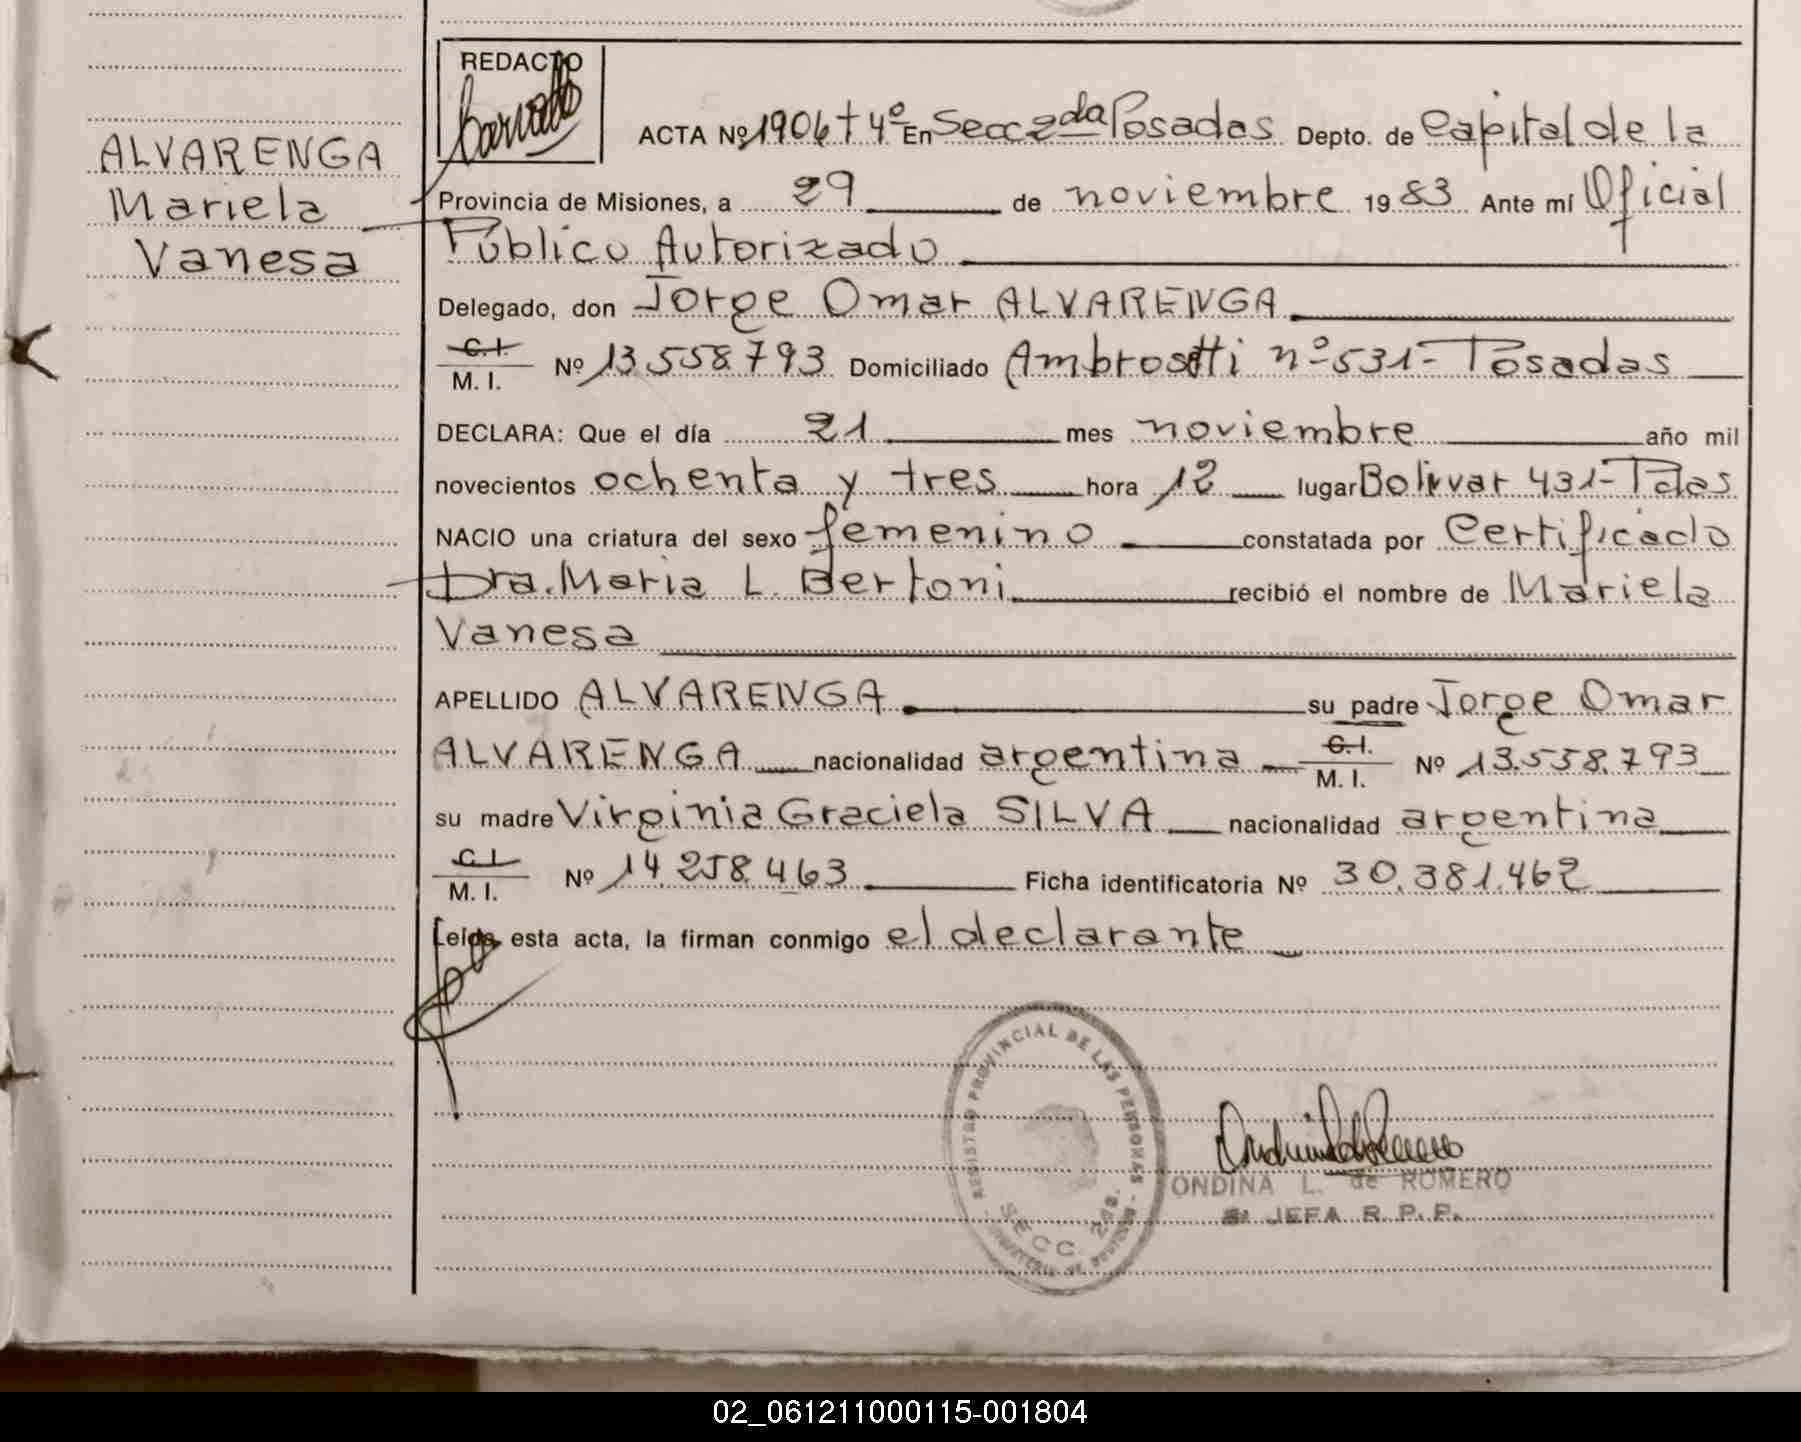 REDACTO
ALVARENGA
Mariela
Vanesa
ACTA Nº 1906 t 4º En Secc 2da Posadas Depto. de Capital de la
Provincia de Misiones, a 29 de noviembre 1983 Ante mí Oficial
Público Autorizado
Delegado, don Jorge Omar ALVARENGA
C.I. M. I. Nº 13.558.793 Domiciliado Ambrosetti nº 531- Posadas
DECLARA: Que el día 21 mes noviembre año mil
novecientos ochenta y tres hora 12 lugar Bolivar 431- Pdas
NACIO una criatura del sexo femenino constatada por Certificado
Dra. Maria L. Bertoni recibió el nombre de Mariela
Vanesa
APELLIDO ALVARENGA su padre Jorge Omar
ALVARENGA nacionalidad argentina C.I. M. I. Nº 13.558.793
su madre Virginia Graciela SILVA nacionalidad argentina
C.I. M. I. Nº 14.258.463 Ficha identificatoria Nº 30.381.462
Leída esta acta, la firman conmigo el declarante
REGISTRO PROVINCIAL DE LAS PERSONAS
SECC. 2da.
ONDINA L. de ROMERO
JEFA R. P. P.
02_061211000115-001804